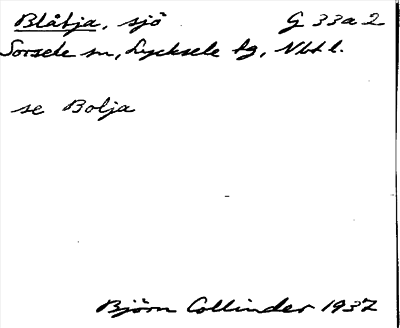 Blåtja, sjö G 33a2
Sorsele sn, Lycksele lg, Vbtl.
se Bolja
Björn Collinder 1937